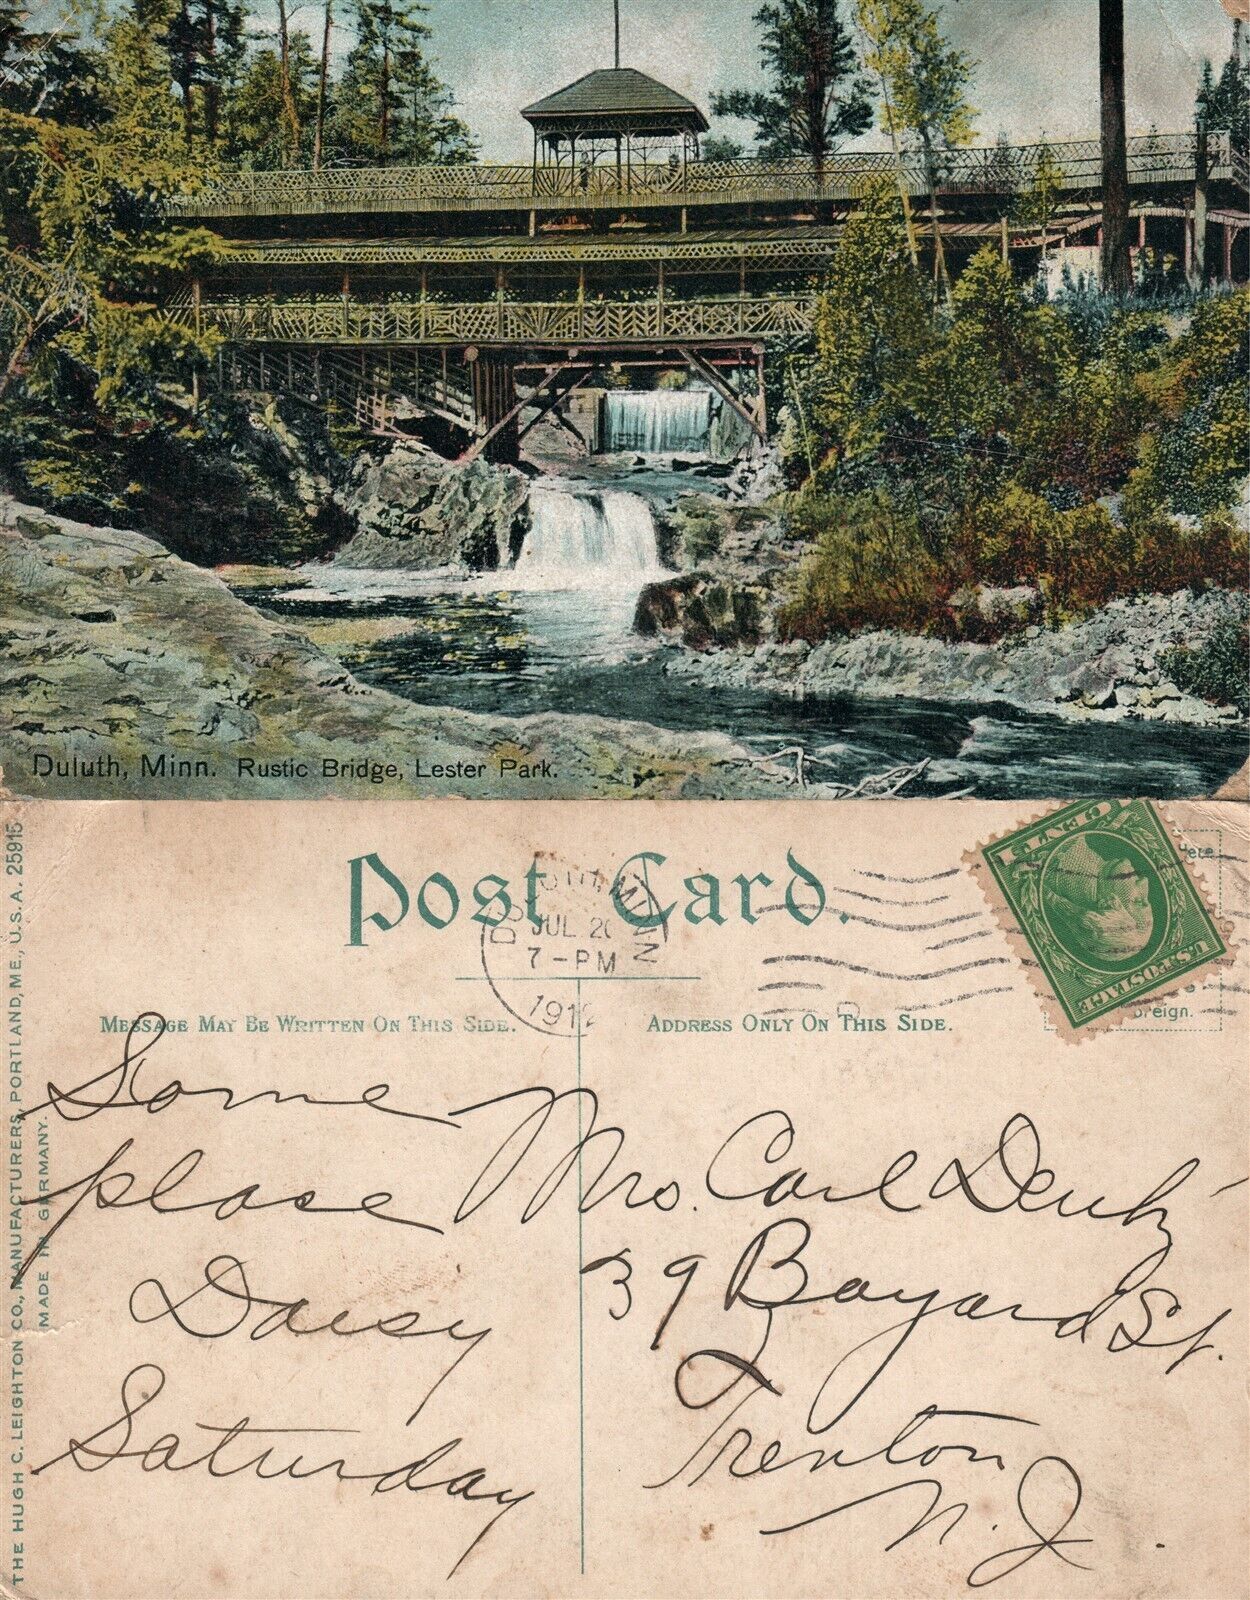 Duluth, Minn. Rustic Bridge, Lester Park.
THE HUGH C. LEIGHTON CO., MANUFACTURERS, PORTLAND, ME., U.S.A. 25915
MADE IN GERMANY.
Post Card.
DULUTH, MINN
JUL 20
7-PM
1912
U.S. POSTAGE
MESSAGE MAY BE WRITTEN ON THIS SIDE.
ADDRESS ONLY ON THIS SIDE.
oreign.
Some
place
Daisy
Saturday
Mrs. Carl
39 Bayard St.
Trenton
N. J.